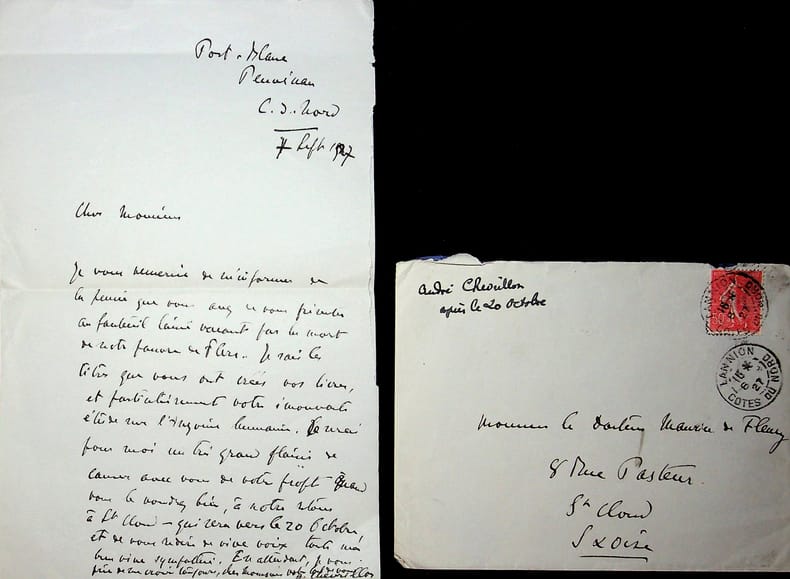 Port-Blanc
Penvénan
C. d. Nord
7 Sept 1927
Cher Monsieur
Je vous remercie de m'informer de
la pensée que vous avez de vous présenter
au fauteuil laissé vacant par la mort
de notre pauvre de Flers. Je sais les
titres que vous ont créés vos livres,
et particulièrement votre émouvante
étude sur l'angoisse humaine. Ce serai
pour moi un très grand plaisir de
causer avec vous de votre projet quand
vous le voudrez bien, à notre retour
à St Cloud – qui sera vers le 20 Octobre,
et de vous redire de vive voix toute ma
bien vive sympathie. En attendant, je vous
prie de me croire toujours, cher Monsieur, votre
A Chevrillon
André Chevrillon
après le 20 octobre
LANNION
16 *
6
27
COTES DU NORD
LANNION
16 *
6
27
COTES DU NORD
Monsieur le Docteur Maurice de Fleury
8 Rue Pasteur
St Cloud
S & Oise